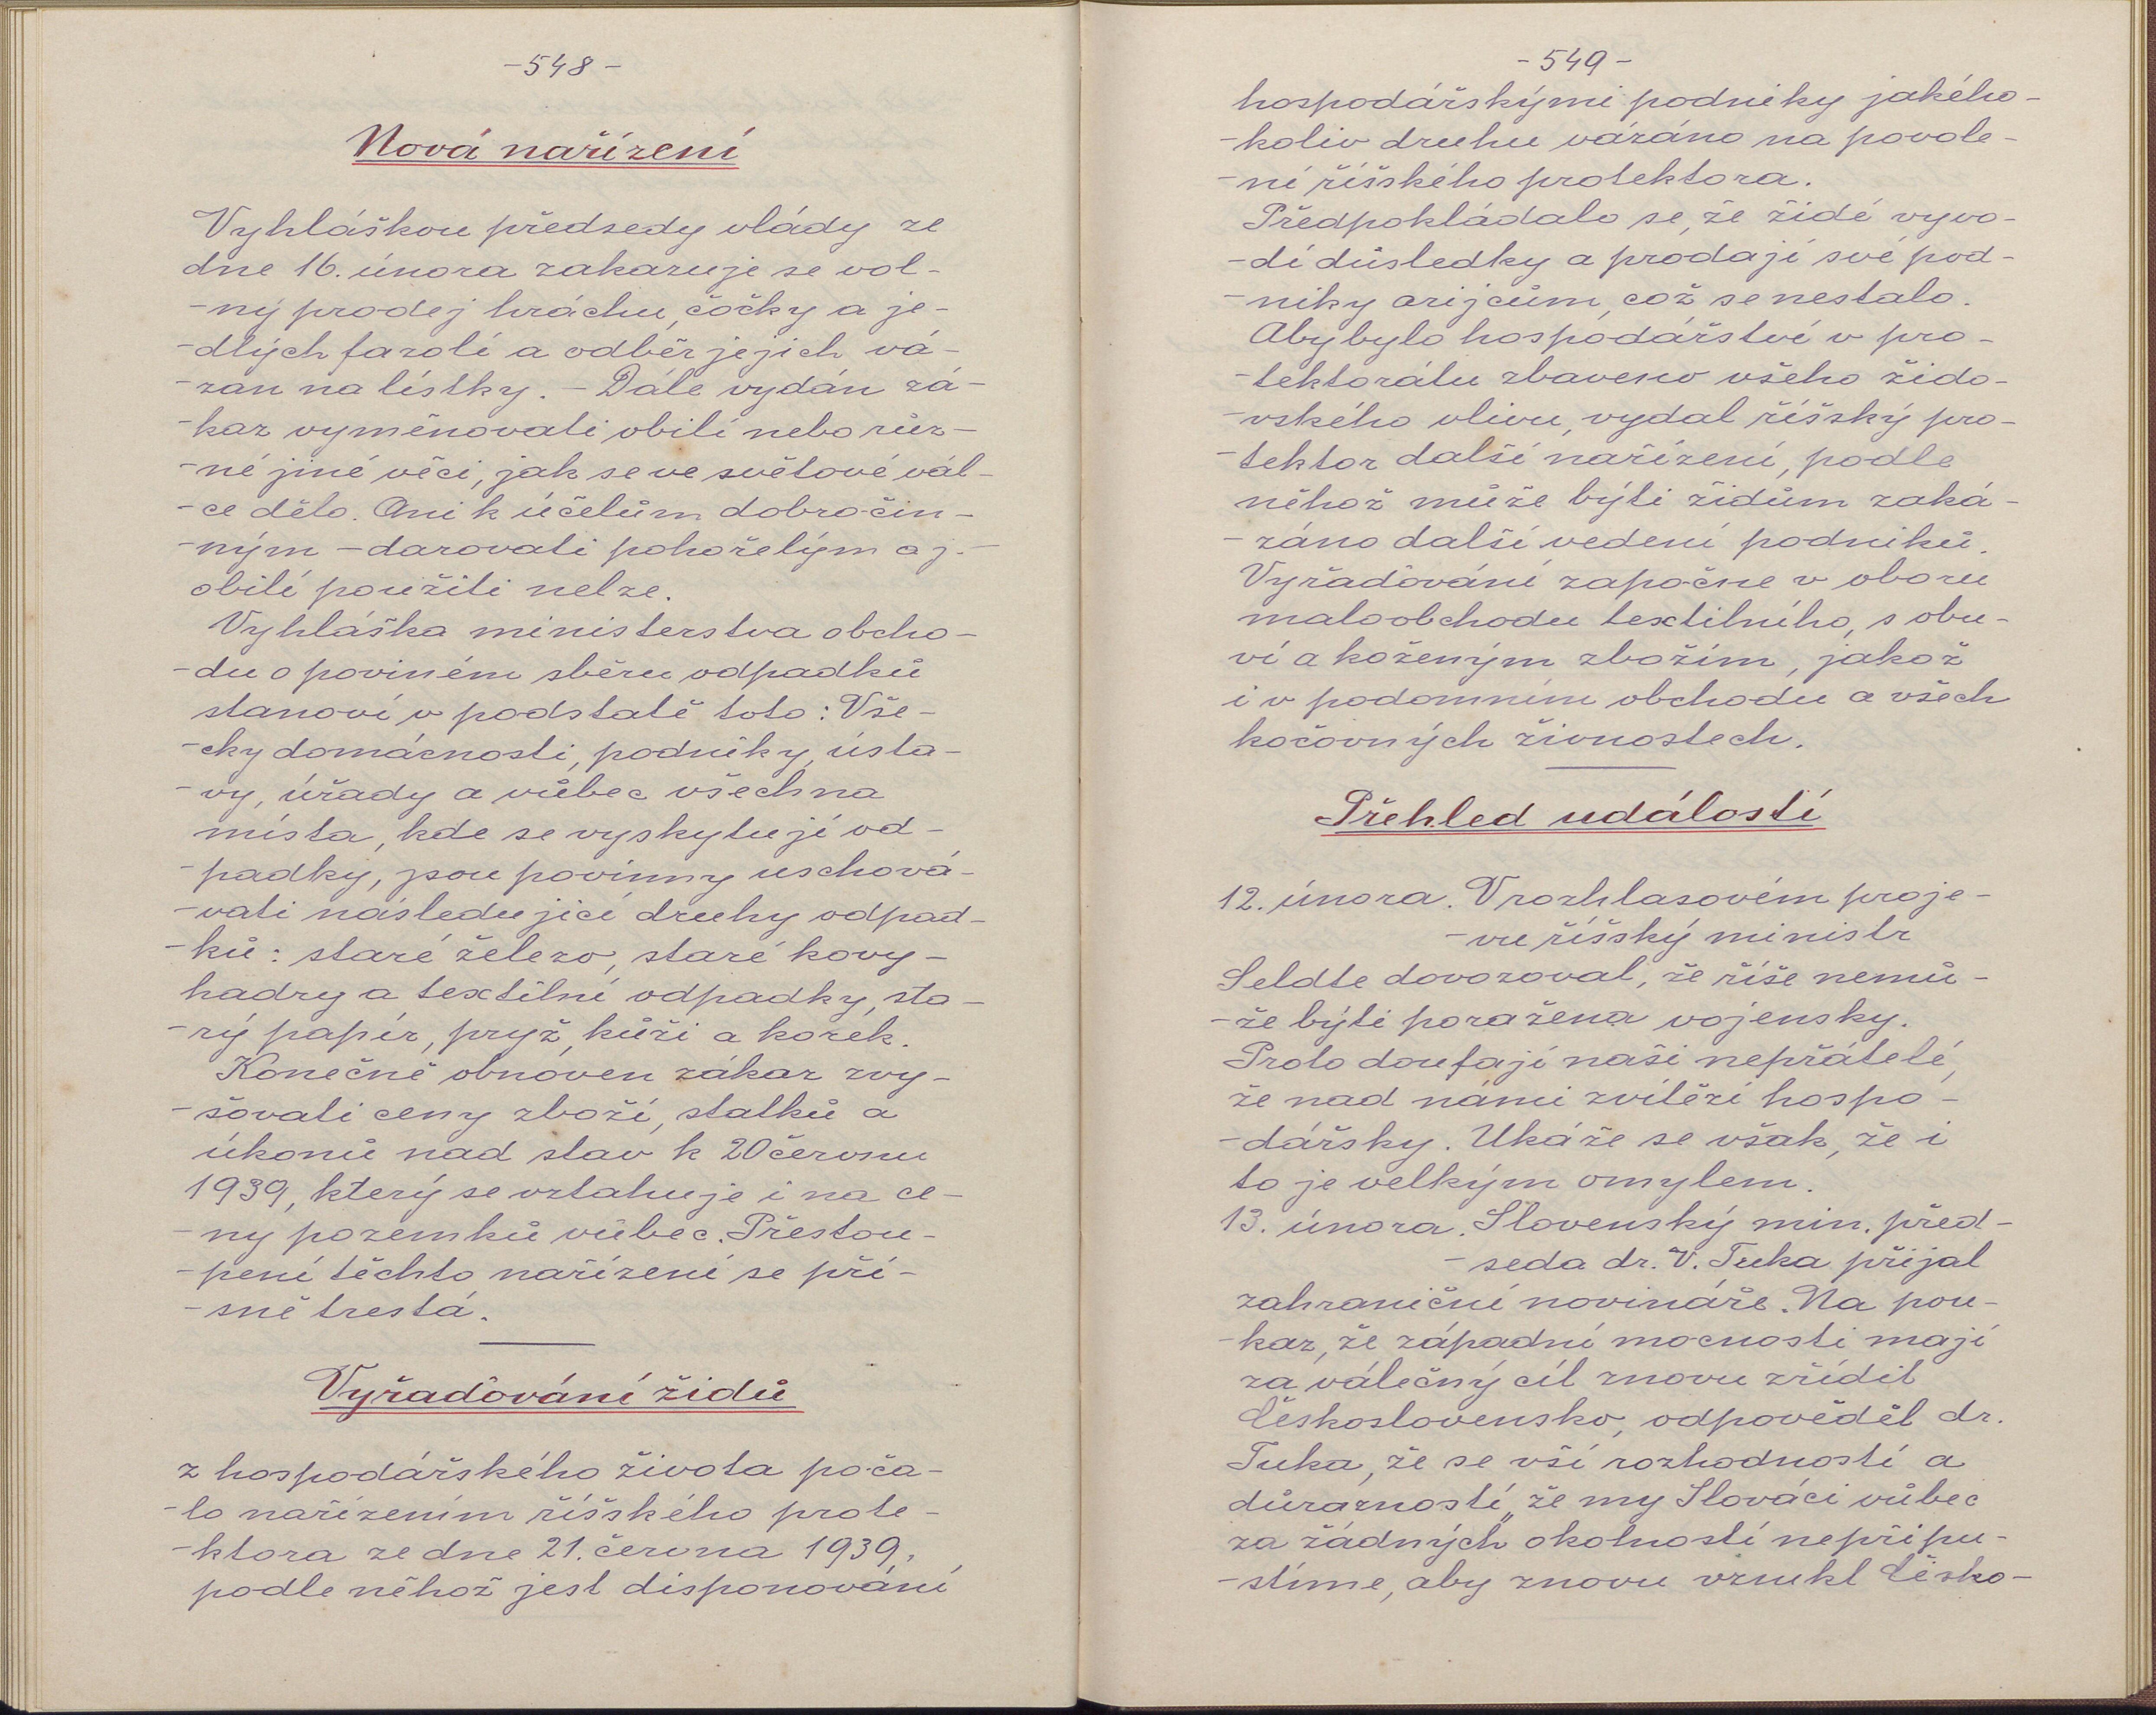 -548-
Nová nařízení
Vyhláškou předsedy vlády ze
dne 16. února zakazuje se vol-
-ný prodej hráchu, čočky a je-
-dlých fazolí a odběr jejich vá-
-zán na lístky. - Dále vydán zá-
-kaz vyměňovati obilí nebo růz-
-né jiné věci, jak se ve světové vál-
-ce dělo. Ani k účelům dobročin-
-ným - darovati pohořelým a j. -
obilí použíti nelze.
Vyhláška ministerstva obcho-
-du o poviném sběru odpadků
stanoví v podstatě toto: Vše-
-cky domácnosti, podniky, ústa-
-vy, úřady a vůbec všechna
místa, kde se vyskytují od-
-padky, jsou povinny uschová-
-vati následující druhy odpad-
-ků: staré železo, staré kovy -
hadry a textilní odpadky, sta-
-rý papír, pryž, kůži a korek.
Konečně obnoven zákaz zvy-
-šovati ceny zboží, statků a
úkonů nad stav k 20 červnu
1939, který se vztahuje i na ce-
-ny pozemků vůbec. Přestou-
-pení těchto nařízení se pří-
-sně trestá.
Vyřaďování židů
z hospodářského života poča-
-lo nařízením říšského prote-
-ktora ze dne 21. června 1939,
podle něhož jest disponování
-549-
hospodářskými podniky jakého-
-koliv druhu vázáno na povole-
-ní říšského protektora.
Předpokládalo se, že židé vyvo-
-dí důsledky a prodají své pod-
-niky arijcům, což se nestalo.
Aby bylo hospodářství v pro-
-tektorátu zbaveno všeho žido-
-vského vlivu, vydal říšský pro-
-tektor další nařízení, podle
něhož může býti židům zaká-
-záno další vedení podniků.
Vyřaďování započne v oboru
maloobchodu textilního, s obu-
ví a koženým zbožím, jakož
i v podomním obchodu a všech
kočovných živnostech.
Přehled událostí
12. února. V rozhlasovém proje-
-vu říšský ministr
Seldte dovozoval, že říše nemů-
-že býti poražena vojensky.
Proto doufají naši nepřátelé,
že nad námi zvítězí hospo-
-dářsky. Ukáže se však, že i
to je velkým omylem.
13. února. Slovenský min. před-
-seda dr. V. Tuka přijal
zahraniční novináře. Na pou-
-kaz, že západní mocnosti mají
za válečný cíl znovu zřídit
Československo, odpověděl dr.
Tuka, že se vší rozhodností a
důrazností „že my Slováci vůbec
za žádných okolností nepřipu-
-stíme, aby znovu vznikl Česko-